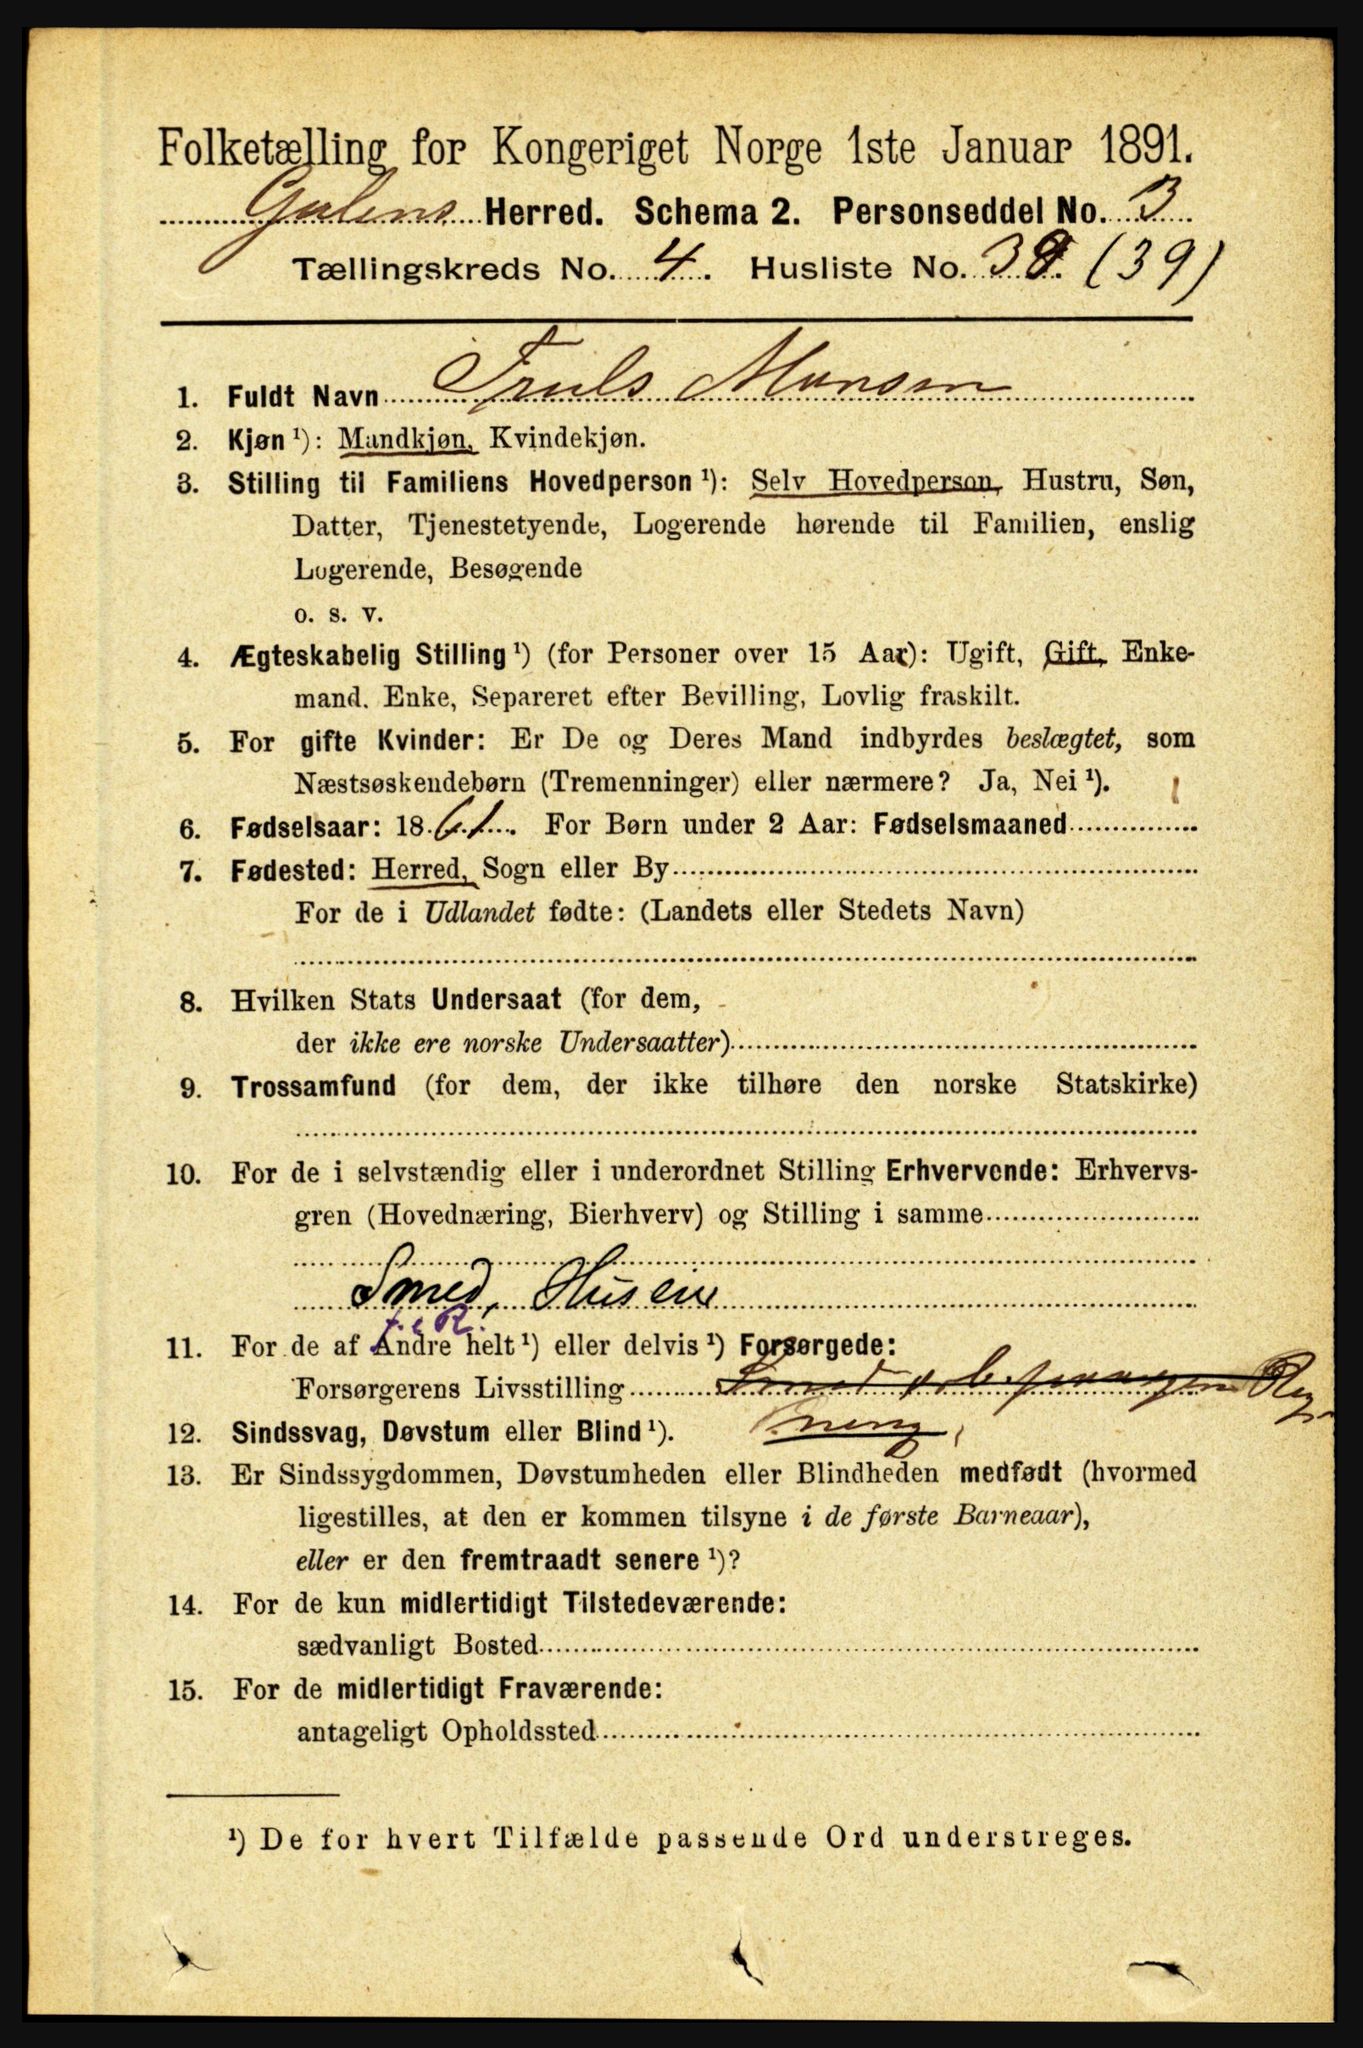 Folketælling for Kongeriget Norge 1ste Januar 1891.
Gulens Herred. Schema 2. Personseddel No. 3
Tællingskreds No. 4. Husliste No. 38. (39)
1. Fuldt Navn Truls Monsen
2. Kjøn ¹): Mandkjøn, Kvindekjøn.
3. Stilling til Familiens Hovedperson ¹): Selv Hovedperson, Hustru, Søn,
Datter, Tjenestetyende, Logerende hørende til Familien, enslig
Logerende, Besøgende
o. s. v.
4. Ægteskabelig Stilling ¹) (for Personer over 15 Aar): Ugift, Gift, Enke-
mand. Enke, Separeret efter Bevilling, Lovlig fraskilt.
5. For gifte Kvinder: Er De og Deres Mand indbyrdes beslægtet, som
Næstsøskendebørn (Tremenninger) eller nærmere? Ja, Nei ¹).
6. Fødselsaar: 1861. For Børn under 2 Aar: Fødselsmaaned
7. Fødested: Herred, Sogn eller By
For de i Udlandet fødte: (Landets eller Stedets Navn)
8. Hvilken Stats Undersaat (for dem,
der ikke ere norske Undersaatter)
9. Trossamfund (for dem, der ikke tilhøre den norske Statskirke)
10. For de i selvstændig eller i underordnet Stilling Erhvervende: Erhvervs-
gren (Hovednæring, Bierhverv) og Stilling i samme
Smed, Huseier
f. e. R.
11. For de af Andre helt ¹) eller delvis ¹) Forsørgede:
Forsørgerens Livsstilling Smed Reg
12. Sindssvag, Døvstum eller Blind ¹). ning
13. Er Sindssygdommen, Døvstumheden eller Blindheden medfødt (hvormed
ligestilles, at den er kommen tilsyne i de første Barneaar),
eller er den fremtraadt senere ¹)?
14. For de kun midlertidigt Tilstedeværende:
sædvanligt Bosted
15. For de midlertidigt Fraværende:
antageligt Opholdssted
¹) De for hvert Tilfælde passende Ord understreges.